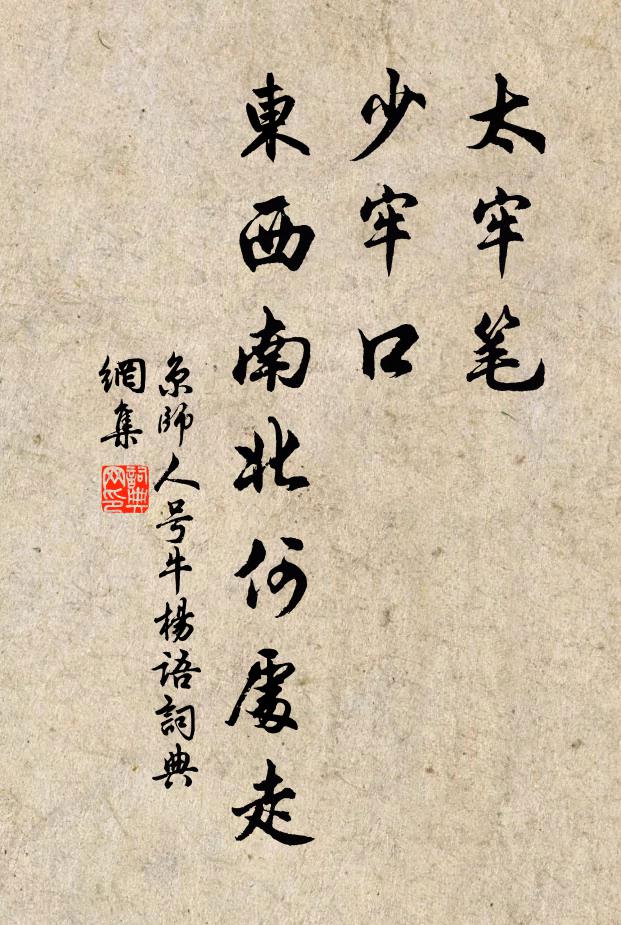 太牢笔
少牢口
東西南北何處走
京師人号牛楊語詞典
網集
詞典
网印